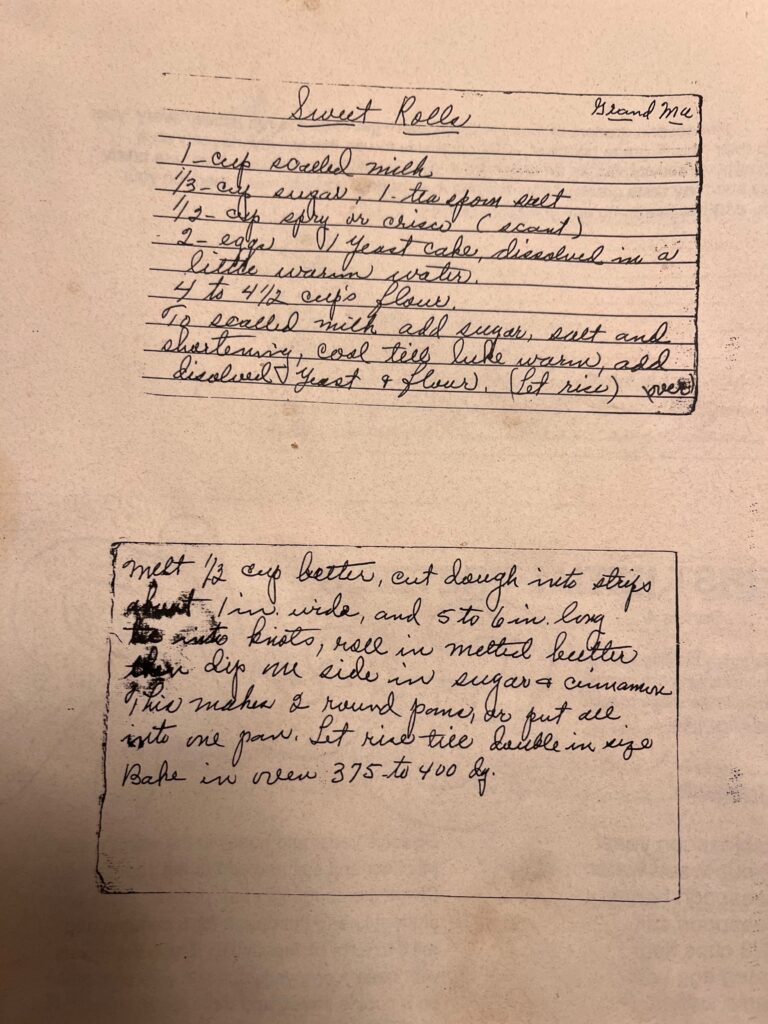 Sweet Rolls
Grand Ma
1-cup scalled milk
1/3-cup sugar, 1-teaspoon salt
1/2-cup spry or crisco (scant)
2-eggs 1 yeast cake, dissolved in a
little warm water.
4 to 4 1/2 cup's flour.
To scalled milk add sugar, salt and
shortening, cool till luke warm, add
disolved yeast & flour. (Let rise) over
Melt 1/3 cup better, cut dough into strips
about 1 in. wide, and 5 to 6 in. long
tie into knots, roll in melted butter
then dip one side in sugar & cinnamon
This makes 2 round pans, or put all
into one pan. Let rise till double in size
Bake in oven 375-to 400 dg.